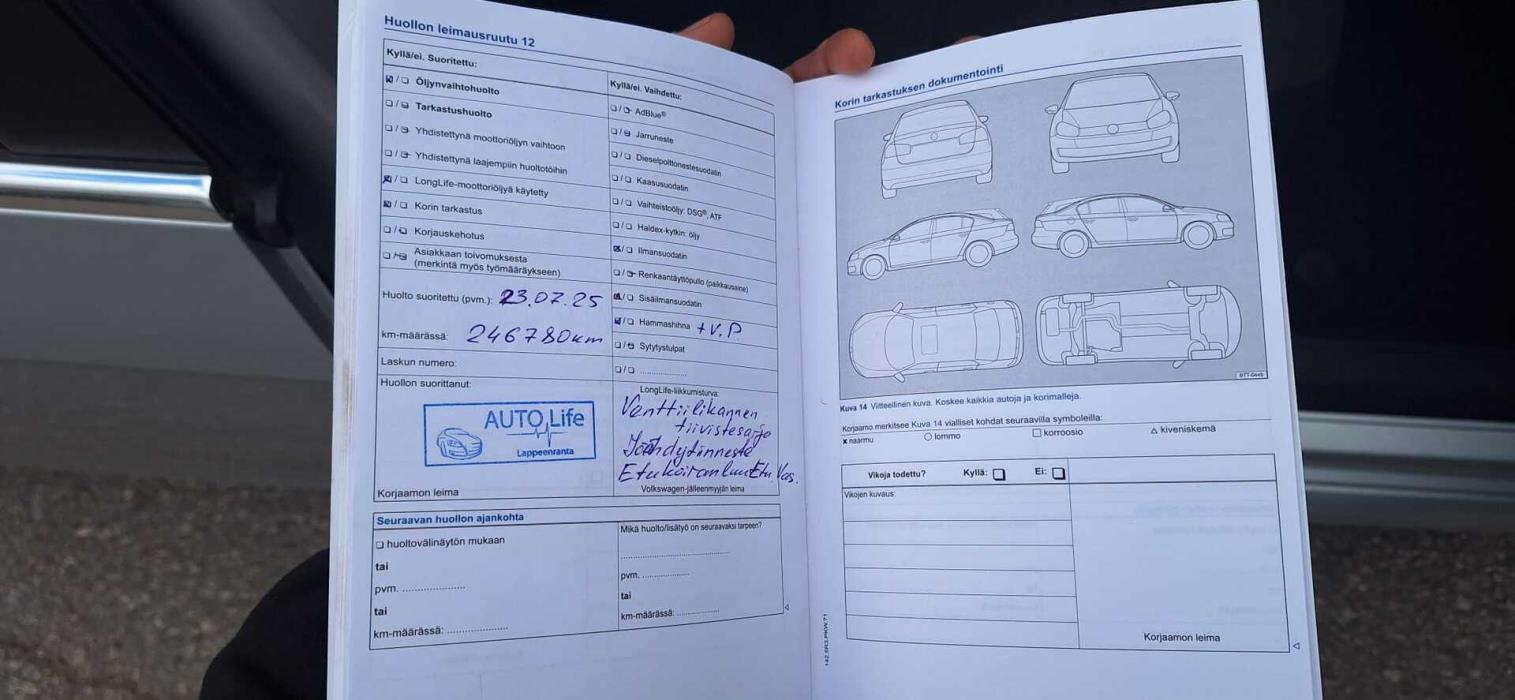 Huollon leimausruutu 12
Kyllä/ei. Suoritettu:
Öljynvaihtohuolto
Tarkastushuolto
Yhdistettynä moottoriöljyn vaihtoon
Yhdistettynä laajempiin huoltotöihin
LongLife-moottoriöljyä käytetty
Korin tarkastus
Korjauskehotus
Asiakkaan toivomuksesta
(merkintä myös työmääräykseen)
Huolto suoritettu (pvm.): 23.07.25
km-määrässä: 246780km
Laskun numero:
Huollon suorittanut:
AUTO Life
Lappeenranta
Korjaamon leima
Kyllä/ei. Vaihdettu:
AdBlue®
Jarruneste
Dieselpolttonestesuodatin
Kaasusuodatin
Vaihteistoöljy: DSG®, ATF
Haldex-kytkin: öljy
Ilmansuodatin
Renkaantäyttöpullo (paikkausaine)
Sisäilmansuodatin
Hammashihna +V.P
Sytytystulpat
LongLife-liikkumisturva:
Venttiilikannen
tiivistesarja
Jäähdytinneste
Etukoiranluu Etu.Vas.
Volkswagen-jälleenmyyjän leima
Seuraavan huollon ajankohta
huoltovälinäytön mukaan
tai
pvm.
tai
km-määrässä:
Mikä huolto/lisätyö on seuraavaksi tarpeen?
pvm.
tai
km-määrässä:
Korin tarkastuksen dokumentointi
Kuva 14 Viitteellinen kuva. Koskee kaikkia autoja ja korimalleja.
Korjaamo merkitsee Kuva 14 vialliset kohdat seuraavilla symboleilla:
x naarmu
lommo
korroosio
kiveniskemä
Vikoja todettu? Kyllä: Ei:
Vikojen kuvaus:
Korjaamon leima